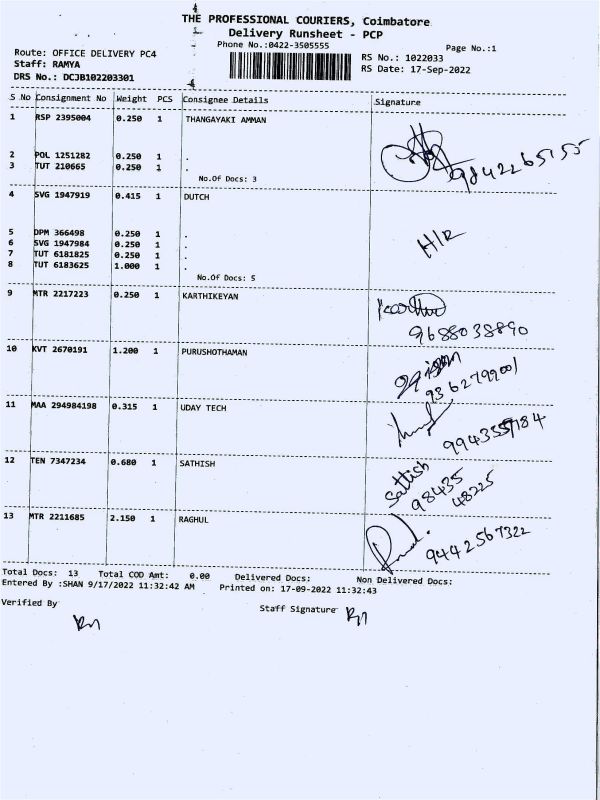 THE PROFESSIONAL COURIERS, Coimbatore
Delivery Runsheet - PCP
Phone No.:0422-3505555
Page No.:1
Route: OFFICE DELIVERY PC4
Staff: RAMYA
DRS No.: DCJB102203301
RS No.: 1022033
RS Date: 17-Sep-2022
S No Consignment No Weight PCS Consignee Details Signature
1 RSP 2395004 0.250 1 THANGAYAKI AMMAN
9842265155
2 POL 1251282 0.250 1 .
3 TUT 210665 0.250 1 .
No.Of Docs: 3
4 SVG 1947919 0.415 1 DUTCH
H/R
5 DPM 366498 0.250 1 .
6 SVG 1947984 0.250 1 .
7 TUT 6181825 0.250 1 .
8 TUT 6183625 1.000 1 .
No.Of Docs: 5
9 MTR 2217223 0.250 1 KARTHIKEYAN
9688038890
10 KVT 2670191 1.200 1 PURUSHOTHAMAN
9362799001
11 MAA 294984198 0.315 1 UDAY TECH
12 TEN 7347234 0.680 1 SATHISH
Sattish
98435
48225
13 MTR 2211685 2.150 1 RAGHUL
9442567322
Total Docs: 13 Total COD Amt: 0.00 Delivered Docs: Non Delivered Docs:
Entered By :SHAN 9/17/2022 11:32:42 AM Printed on: 17-09-2022 11:32:43
Verified By
Staff Signature